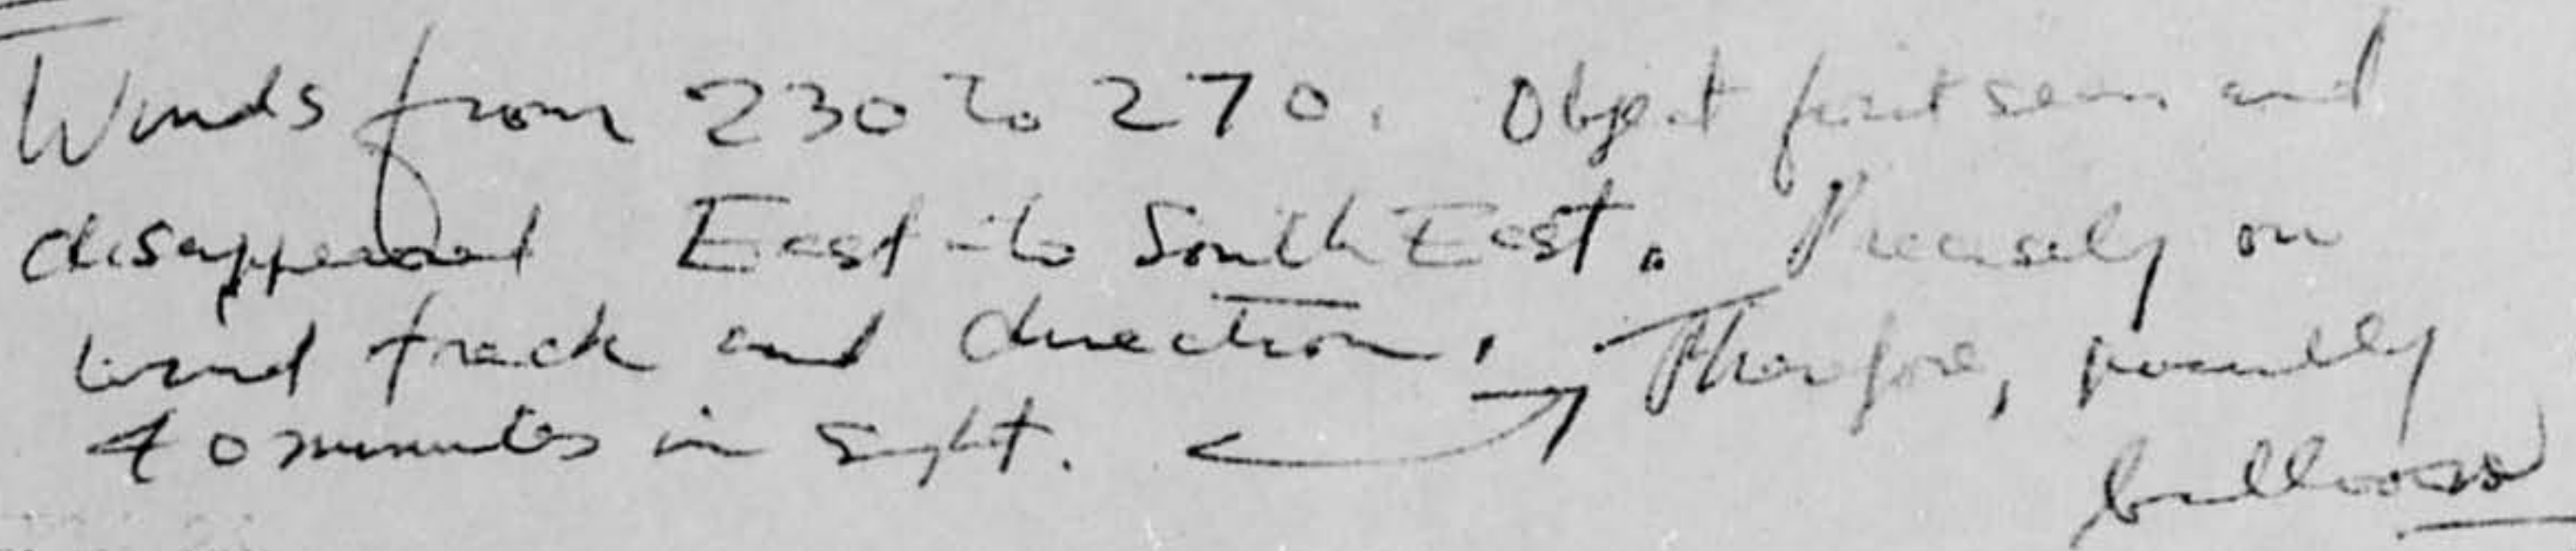 Winds from 230 to 270. Object first seen and
disappeared East to South East. Precisely on
wind track and direction. Therefore, possibly
40 minutes in sight. balloon